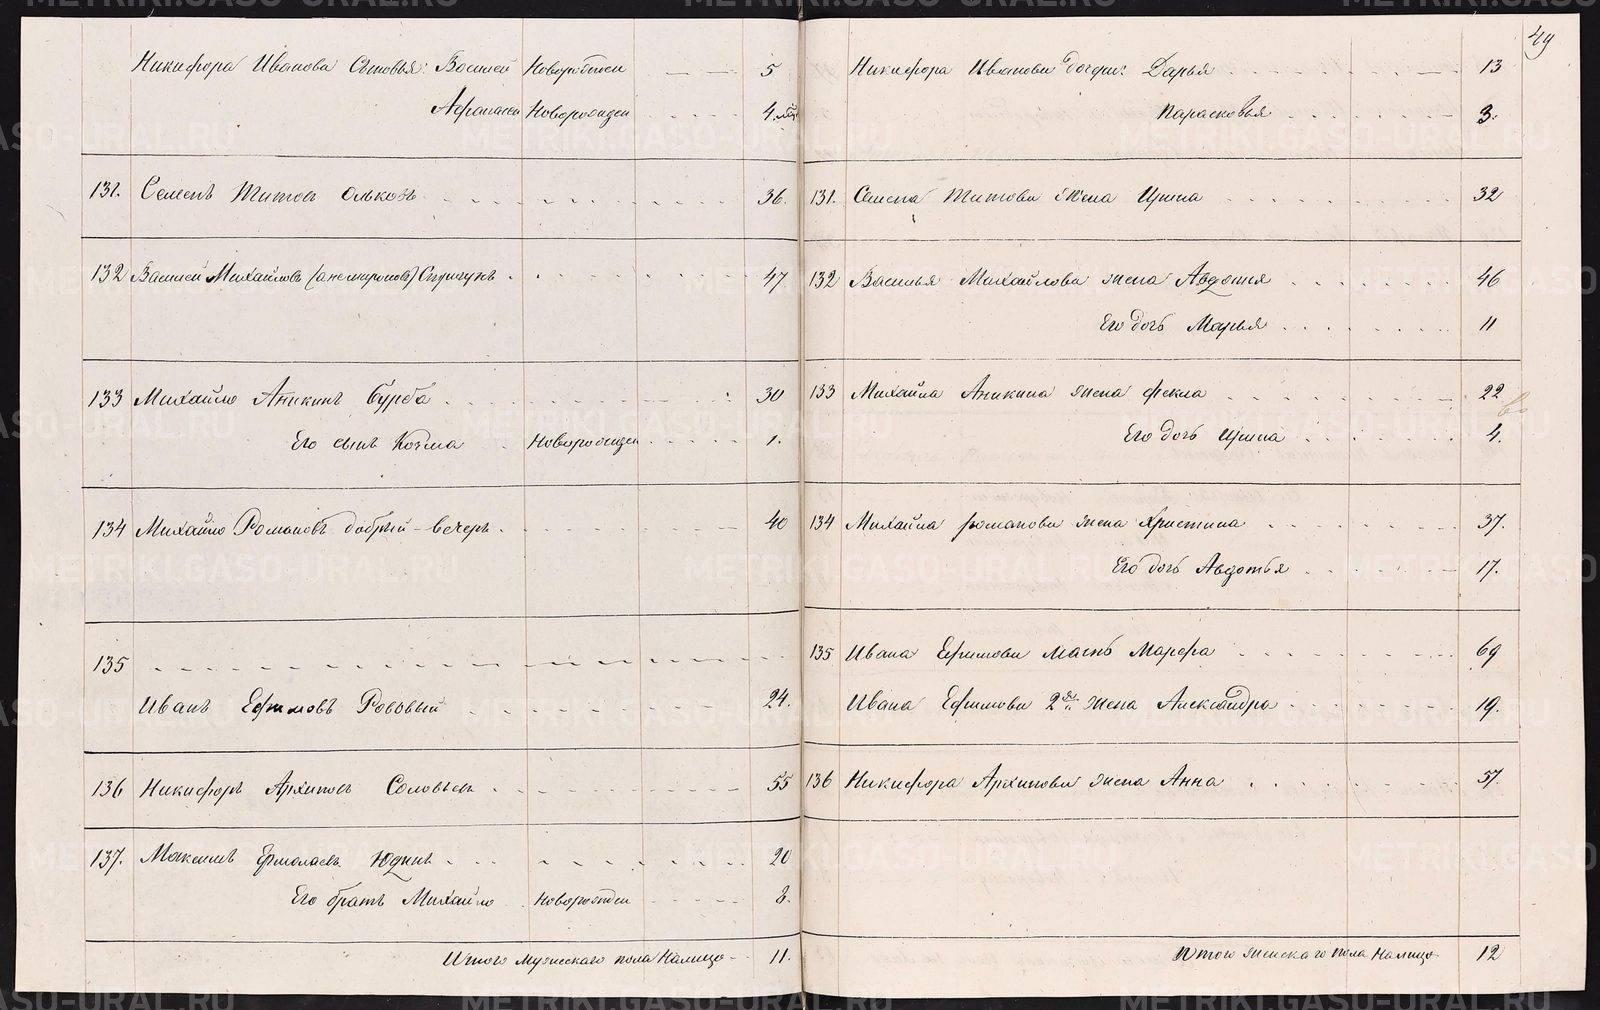 49
Никифора Иванова Сыновья: Василей Новорожден 5
Афанасей Новорожден 4. мес
131. Семенъ Титовъ Ольковъ 36.
132 Василей Михайловъ (онемироновъ) Стригунъ 47
133 Михайло Аникинъ Бурба 30
Его сынъ Козма Новорожден 1.
134 Михайло Романовъ добрый-вечеръ 40
135
Иванъ Ефимовъ Рововый 24.
136 Никифоръ Архиповъ Соловьевъ 55
137. Максимъ Ермолаевъ Юдинъ 20
Его братъ Михайло Новорожден 8.
Итого мужескаго пола Налицо 11.
Никифора Иванова дочери: Дарья 13
Парасковья 3.
131. Семена Титова жена Ирина 32
132 Василья Михайлова жена Авдотья 46
Его дочь Марья 11
133 Михайла Аникина жена Фекла 22
Его дочь Ирина 4.
134 Михайла романова жена Христина 37.
Его дочь Авдотья 17.
135 Ивана Ефимова мать Марфа 69
Ивана Ефимова 2я жена Александра 19.
136 Никифора Архипова жена Анна 57.
Итого женскаго пола Налицо 12
METRIKI.GASO-URAL.RU